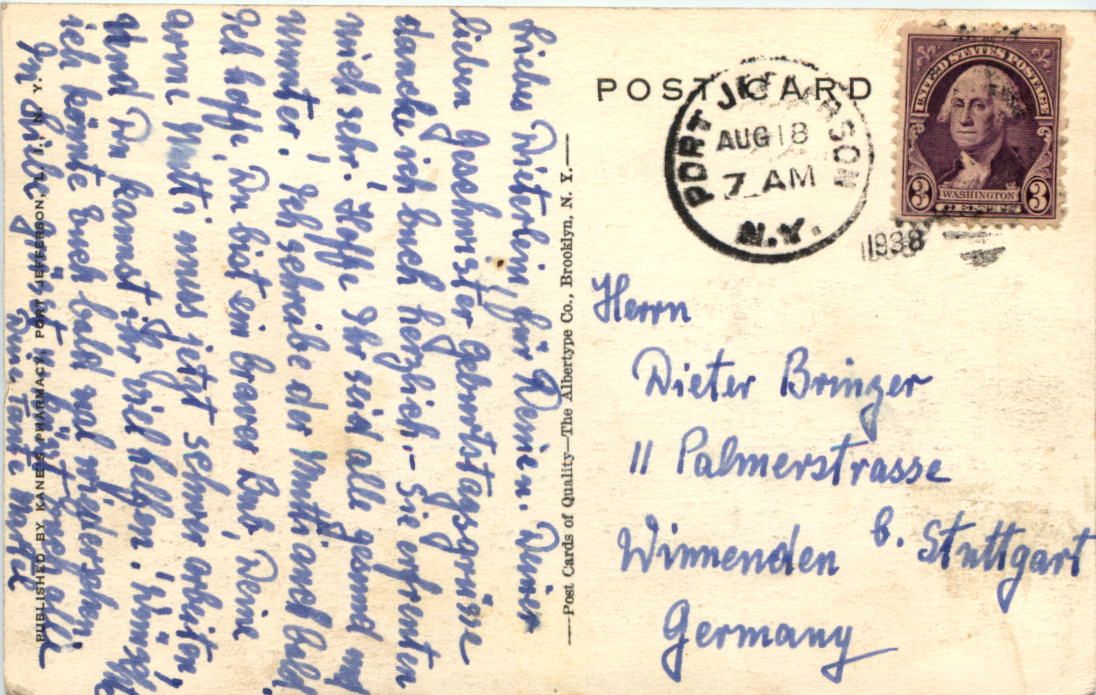 POST CARD
PORT JEFFERSON
AUG 18
7 AM
N.Y.
1938
UNITED STATES POSTAGE
3 WASHINGTON 3
CENTS
Liebes Dieterlein, für Deine u. Deiner
lieben Geschwister Geburtstagsgrüsse
danke ich Euch herzlich. - Sie erfreuten
mich sehr. Hoffe Ihr seid alle gesund und
munter. Ich schreibe der Mutti auch bald.
Ich hoffe, Du bist ein braver Bub, Deine
arme Mutti muss jetzt schwer arbeiten,
und Du kannst ihr viel helfen. Wünschte
ich könnte Euch bald mal wiedersehn.
In Liebe grüsst u. küsst Euch alle
Eure Tante
Herrn
Dieter Bringer
11 Palmerstrasse
Winnenden b. Stuttgart
Germany
—Post Cards of Quality—The Albertype Co., Brooklyn, N. Y.—
PUBLISHED BY KANE'S PHARMACY, PORT JEFFERSON, L. I., N. Y.